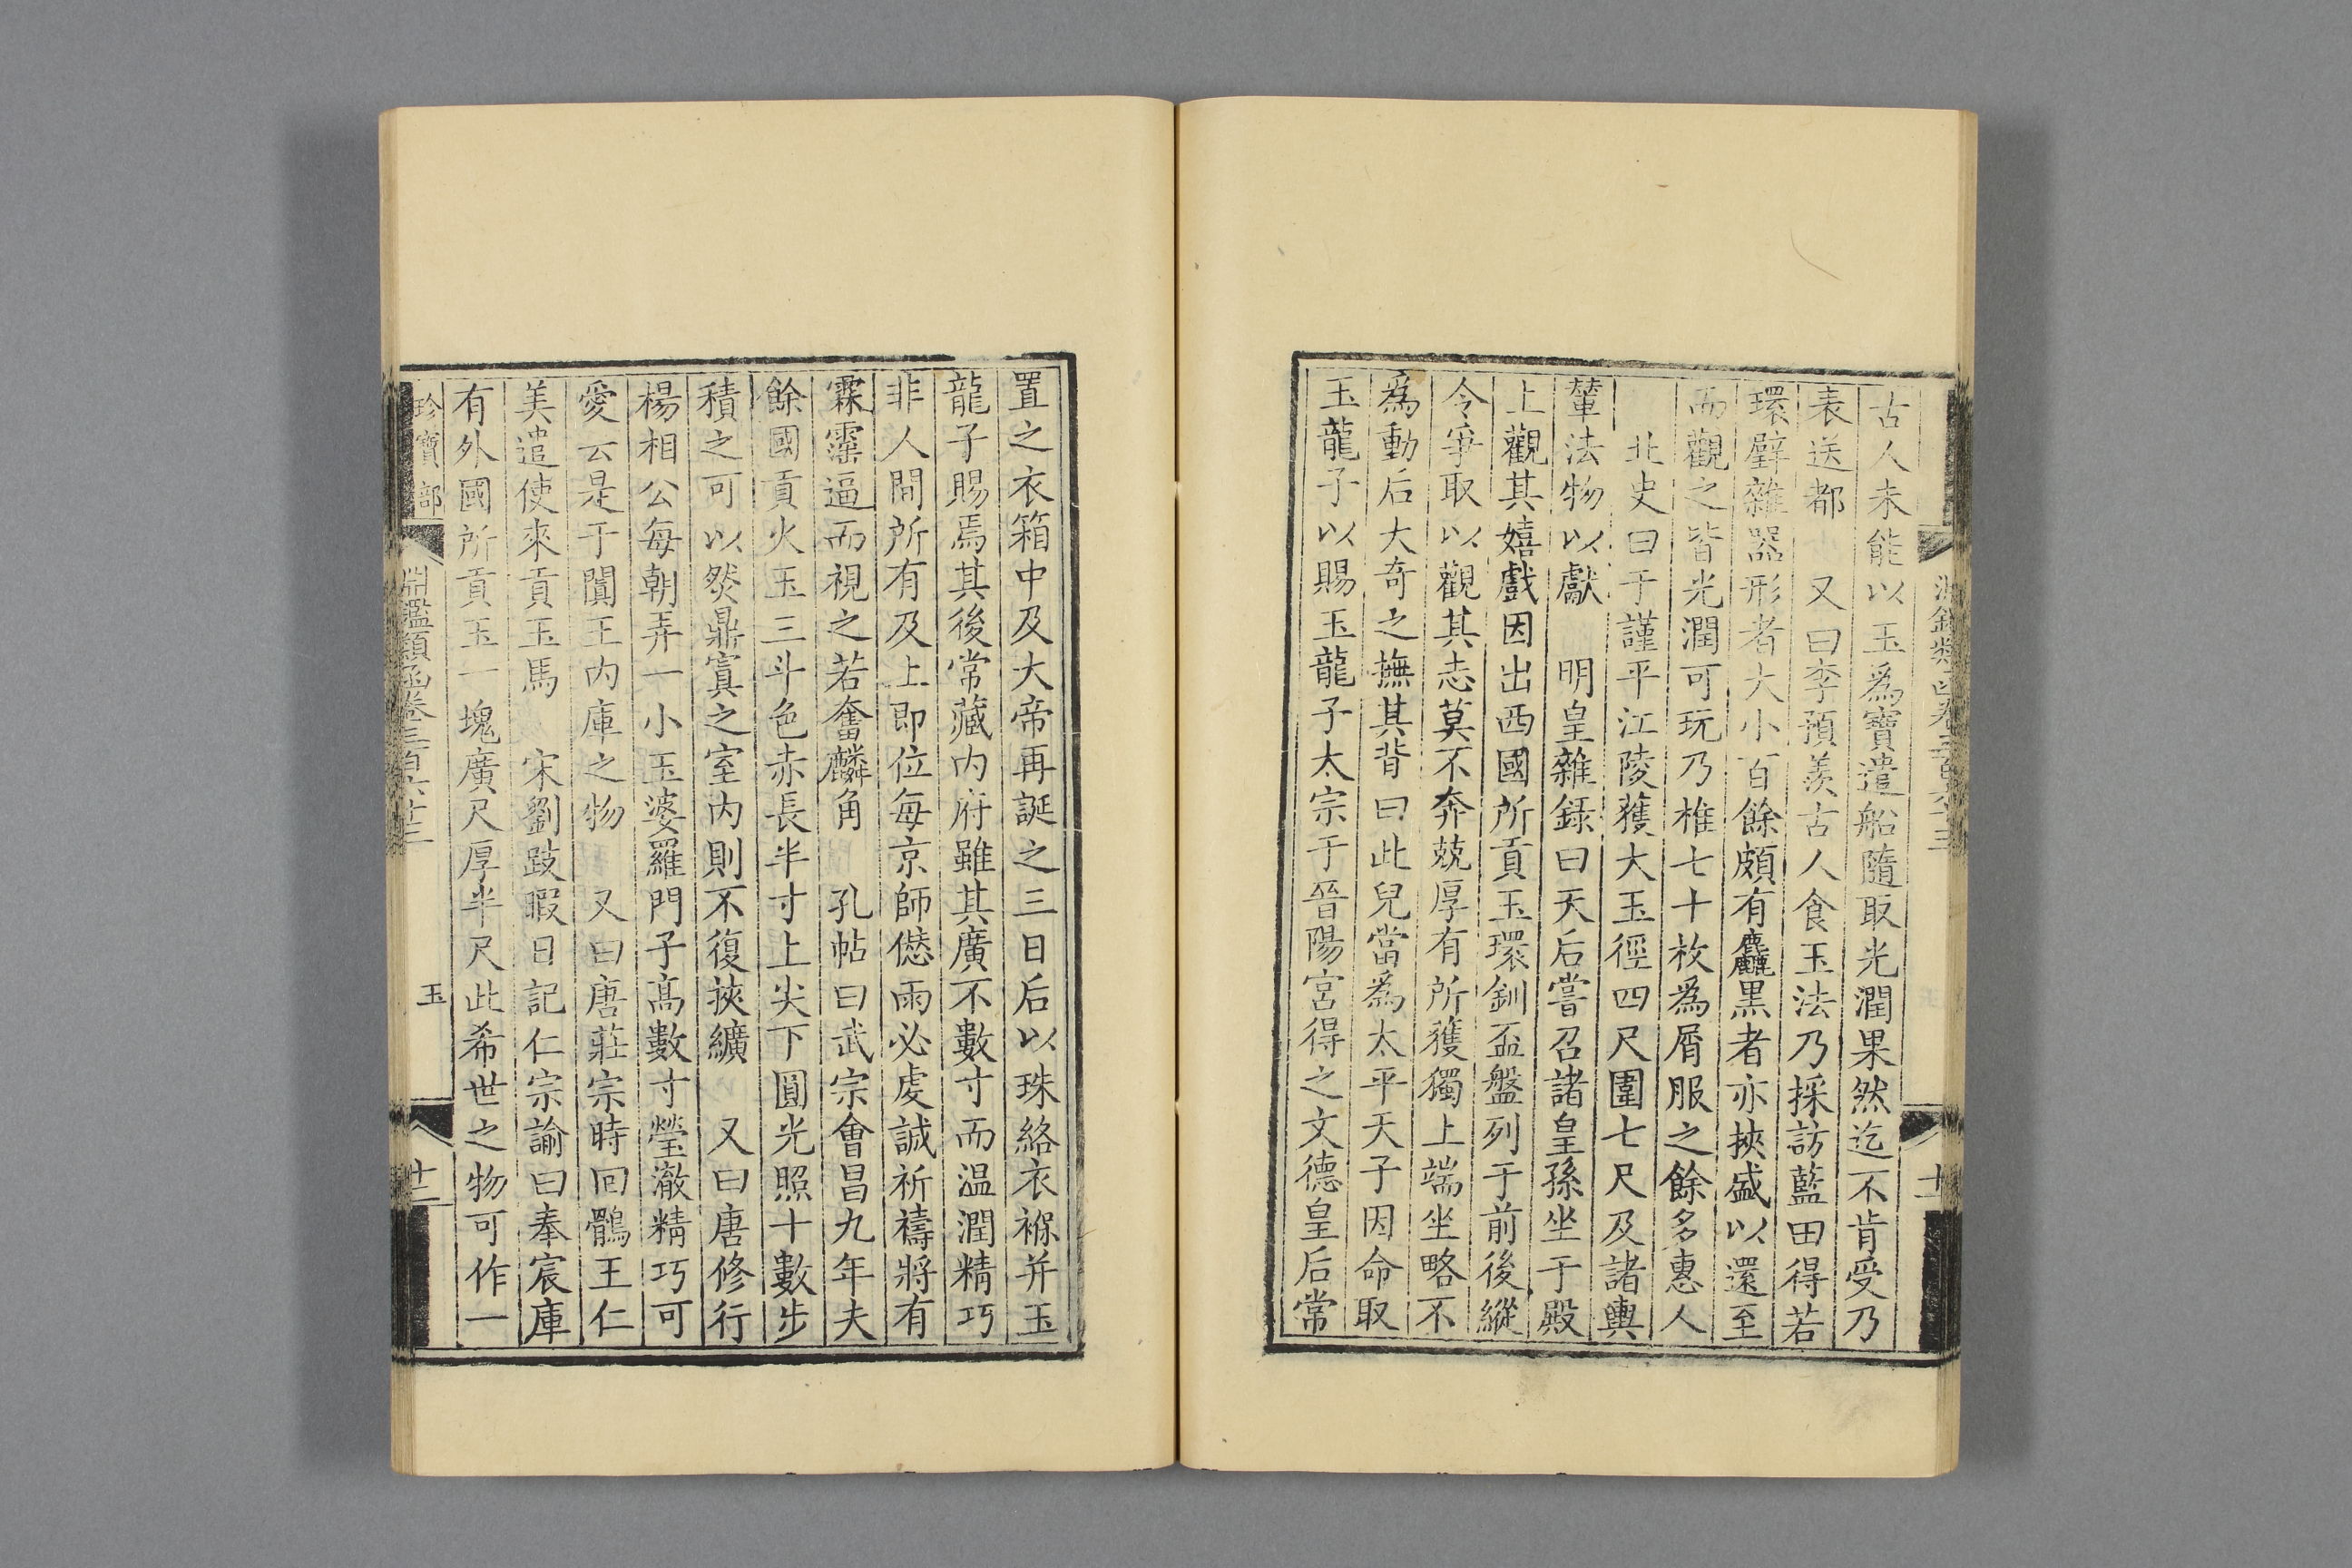 古人未能以玉爲寶遣船隨取光潤果然迄不肯受乃
表送都　又曰李預羨古人食玉法乃採訪藍田得若
環璧雜器形者大小百餘頗有麤黑者亦挾盛以還至
而觀之皆光潤可玩乃椎七十枚爲屑服之餘多惠人
北史曰于謹平江陵獲大玉徑四尺圍七尺及諸輿
輦法物以獻　明皇雜録曰天后嘗召諸皇孫坐于殿
上觀其嬉戲因出西國所貢玉環釧盃盤列于前後縱
令爭取以觀其志莫不奔兢厚有所獲獨上端坐略不
爲動后大奇之撫其背曰此兒當爲太平天子因命取
玉龍子以賜玉龍子太宗于晉陽宮得之文德皇后常
置之衣箱中及大帝再誕之三日后以珠絡衣褓并玉
龍子賜焉其後常藏内府雖其廣不數寸而温潤精巧
非人間所有及上即位每京師僽雨必虔誠祈禱將有
霖霪逼而視之若奮麟角　孔帖曰武宗會昌九年夫
餘國貢火玉三斗色赤長半寸上尖下圓光照十數步
積之可以燃鼎寘之室内則不復挾纊　又曰唐修行
楊相公每朝弄一小玉婆羅門子髙數寸瑩澈精巧可
愛云是于闐王内庫之物　又曰唐莊宗時回鶻王仁
美遣使來貢玉馬　宋劉跂暇日記仁宗諭曰奉宸庫
有外國所貢玉一塊廣尺厚半尺此希世之物可作一
珍寶部
淵鑑類函卷三百六十三
玉
十二